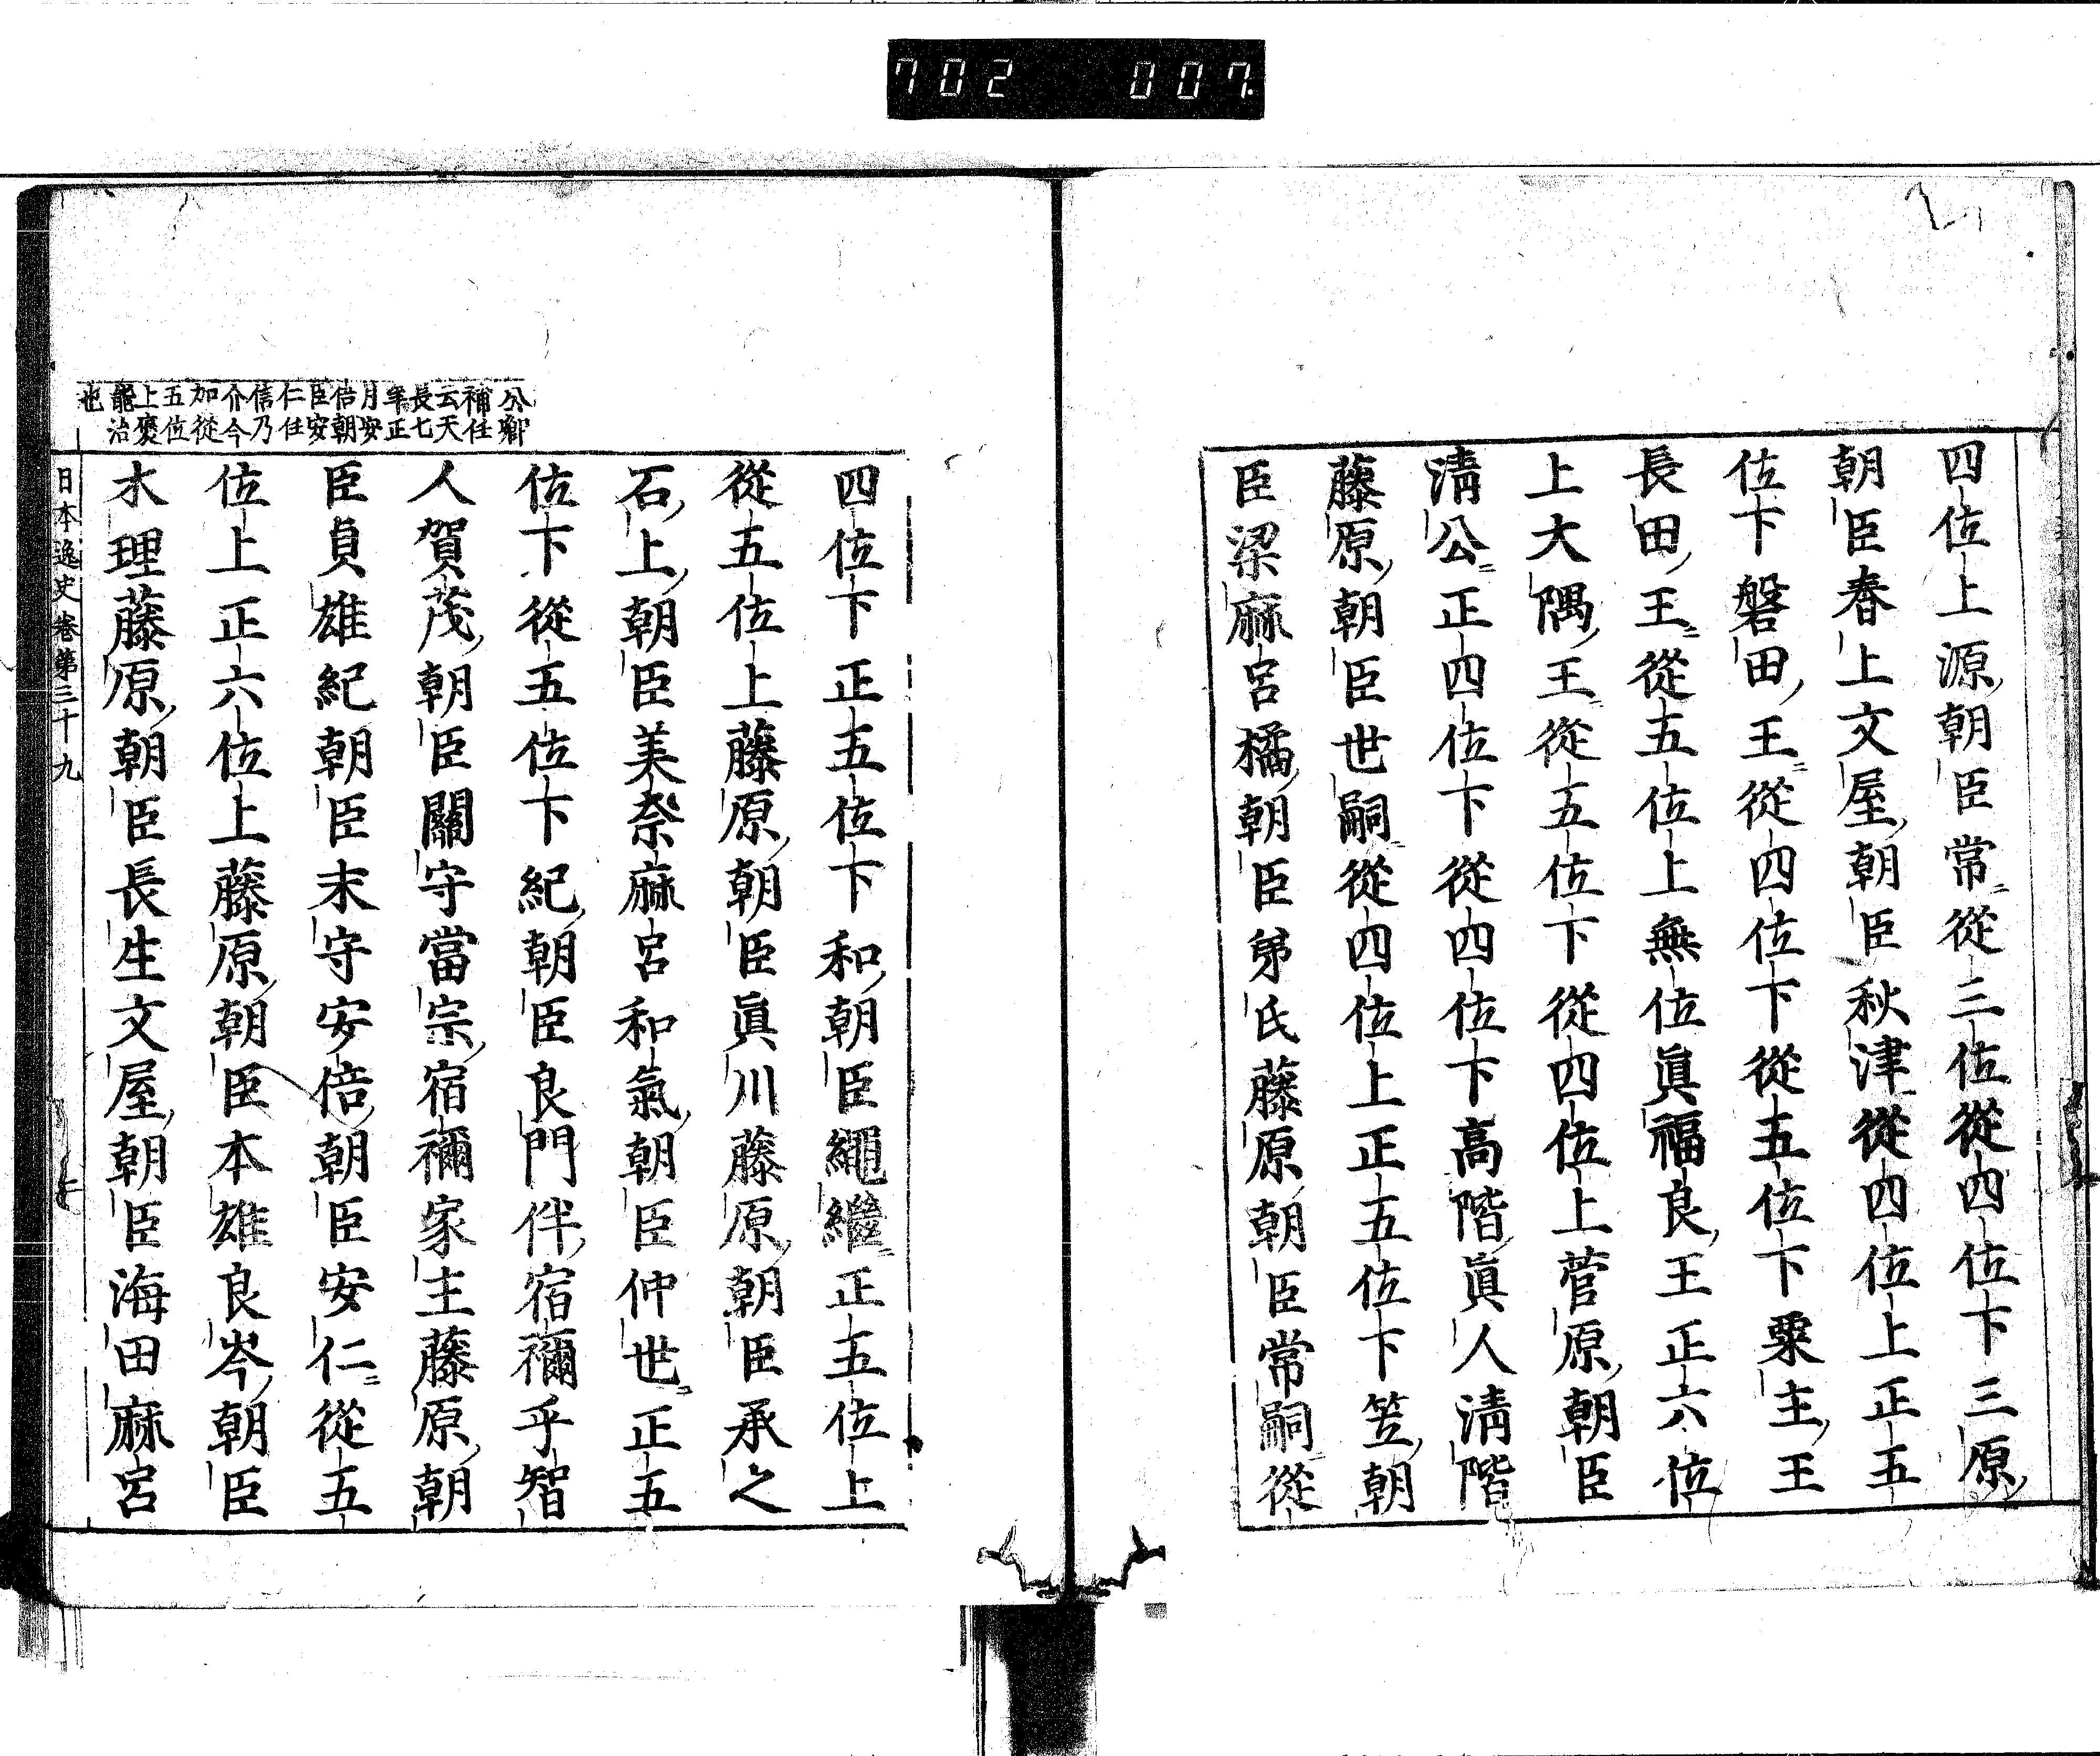 702 007.
四位上源朝臣常從三位從四位下三原
朝臣春上文屋朝臣秋津從四位上正五
位下磐田王從四位下從五位下粟主王
長田王從五位上無位眞福良王正六位
上大隅王從五位下從四位上菅原朝臣
淸公正四位下從四位下高階眞人淸階
藤原朝臣世嗣從四位上正五位下笠朝
臣梁麻呂橘朝臣弟氏藤原朝臣常嗣從
四位下正五位下和朝臣繩繼正五位上
從五位上藤原朝臣眞川藤原朝臣承之
石上朝臣美奈麻呂和氣朝臣仲世正五
位下從五位下紀朝臣良門伴宿禰乎智
人賀茂朝臣關守當宗宿禰家主藤原朝
臣貞雄紀朝臣末守安倍朝臣安仁從五
位上正六位上藤原朝臣本雄良岑朝臣
水理藤原朝臣長生文屋朝臣海田麻呂
公卿
補任
云天
長七
年正
月安
倍朝
臣安
仁任
信乃
介今
加從
五位
上褒
能治
也
日本逸史卷第三十九